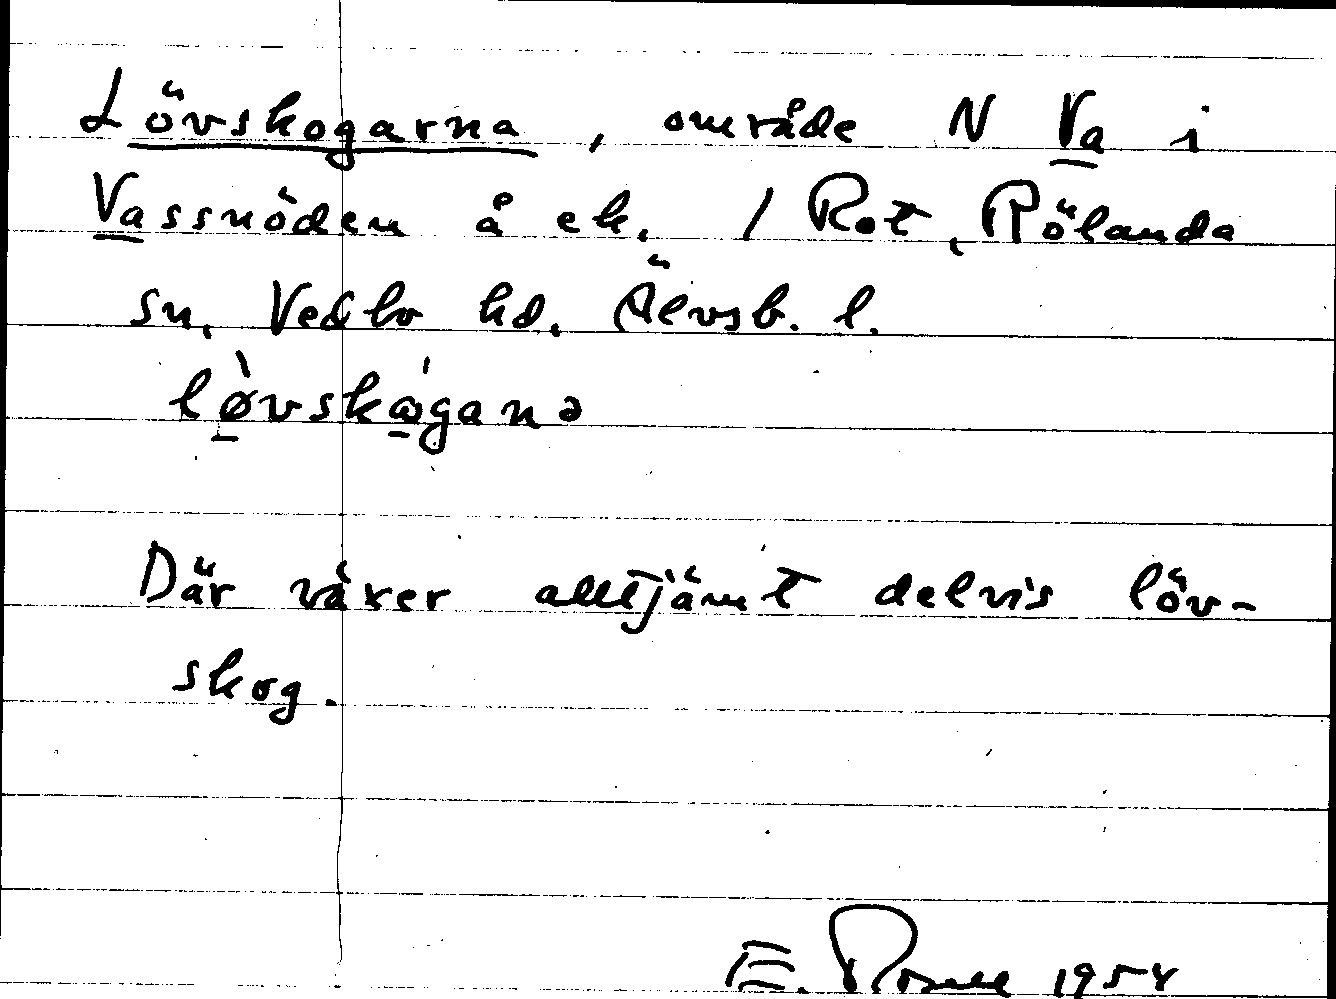 Lövskogarna, område N Va i
Vassnöden å ek. 1 Rot, Rölanda
sn, Vedbo hd. Älvsb. l.
lø̠̀vskɷ̠́ganə
Där växer alltjämt delvis löv-
skog.
E. 1954